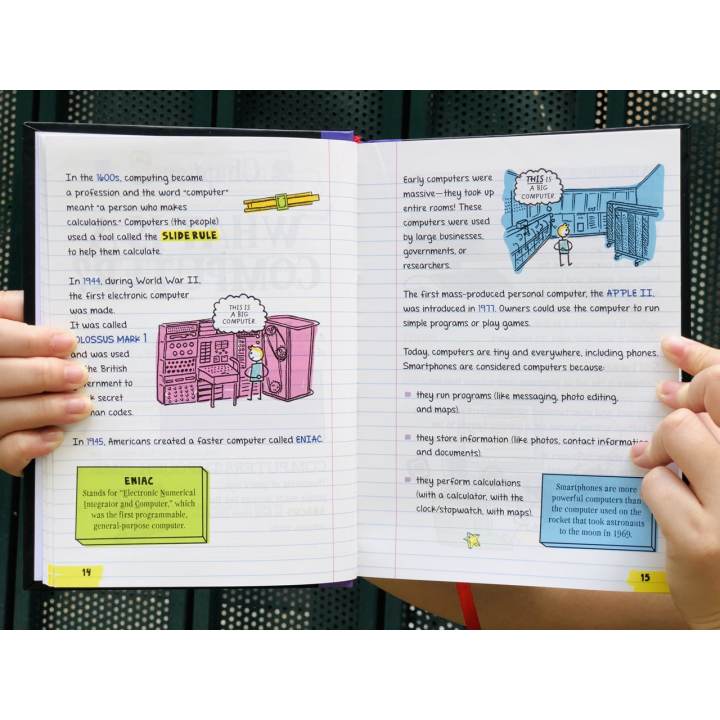 In the 1600s, computing became
a profession and the word "computer"
meant "a person who makes
calculations." Computers (the people)
used a tool called the SLIDE RULE
to help them calculate.
In 1944, during World War II,
the first electronic computer
was made.
It was called
OLOSSUS MARK 1
and was used
the British
ernment to
secret
man codes.
THIS IS
A BIG
COMPUTER.
In 1945, Americans created a faster computer called ENIAC.
ENIAC
Stands for "Electronic Numerical
Integrator and Computer," which
was the first programmable,
general-purpose computer.
14
Early computers were
massive—they took up
entire rooms! These
computers were used
by large businesses,
governments, or
researchers.
THIS IS
A BIG
COMPUTER.
The first mass-produced personal computer, the APPLE II,
was introduced in 1977. Owners could use the computer to run
simple programs or play games.
Today, computers are tiny and everywhere, including phones.
Smartphones are considered computers because:
they run programs (like messaging, photo editing,
and maps).
they store information (like photos, contact information,
and documents).
they perform calculations
(with a calculator, with the
clock/stopwatch, with maps).
Smartphones are more
powerful computers than
the computer used on the
rocket that took astronauts
to the moon in 1969.
15